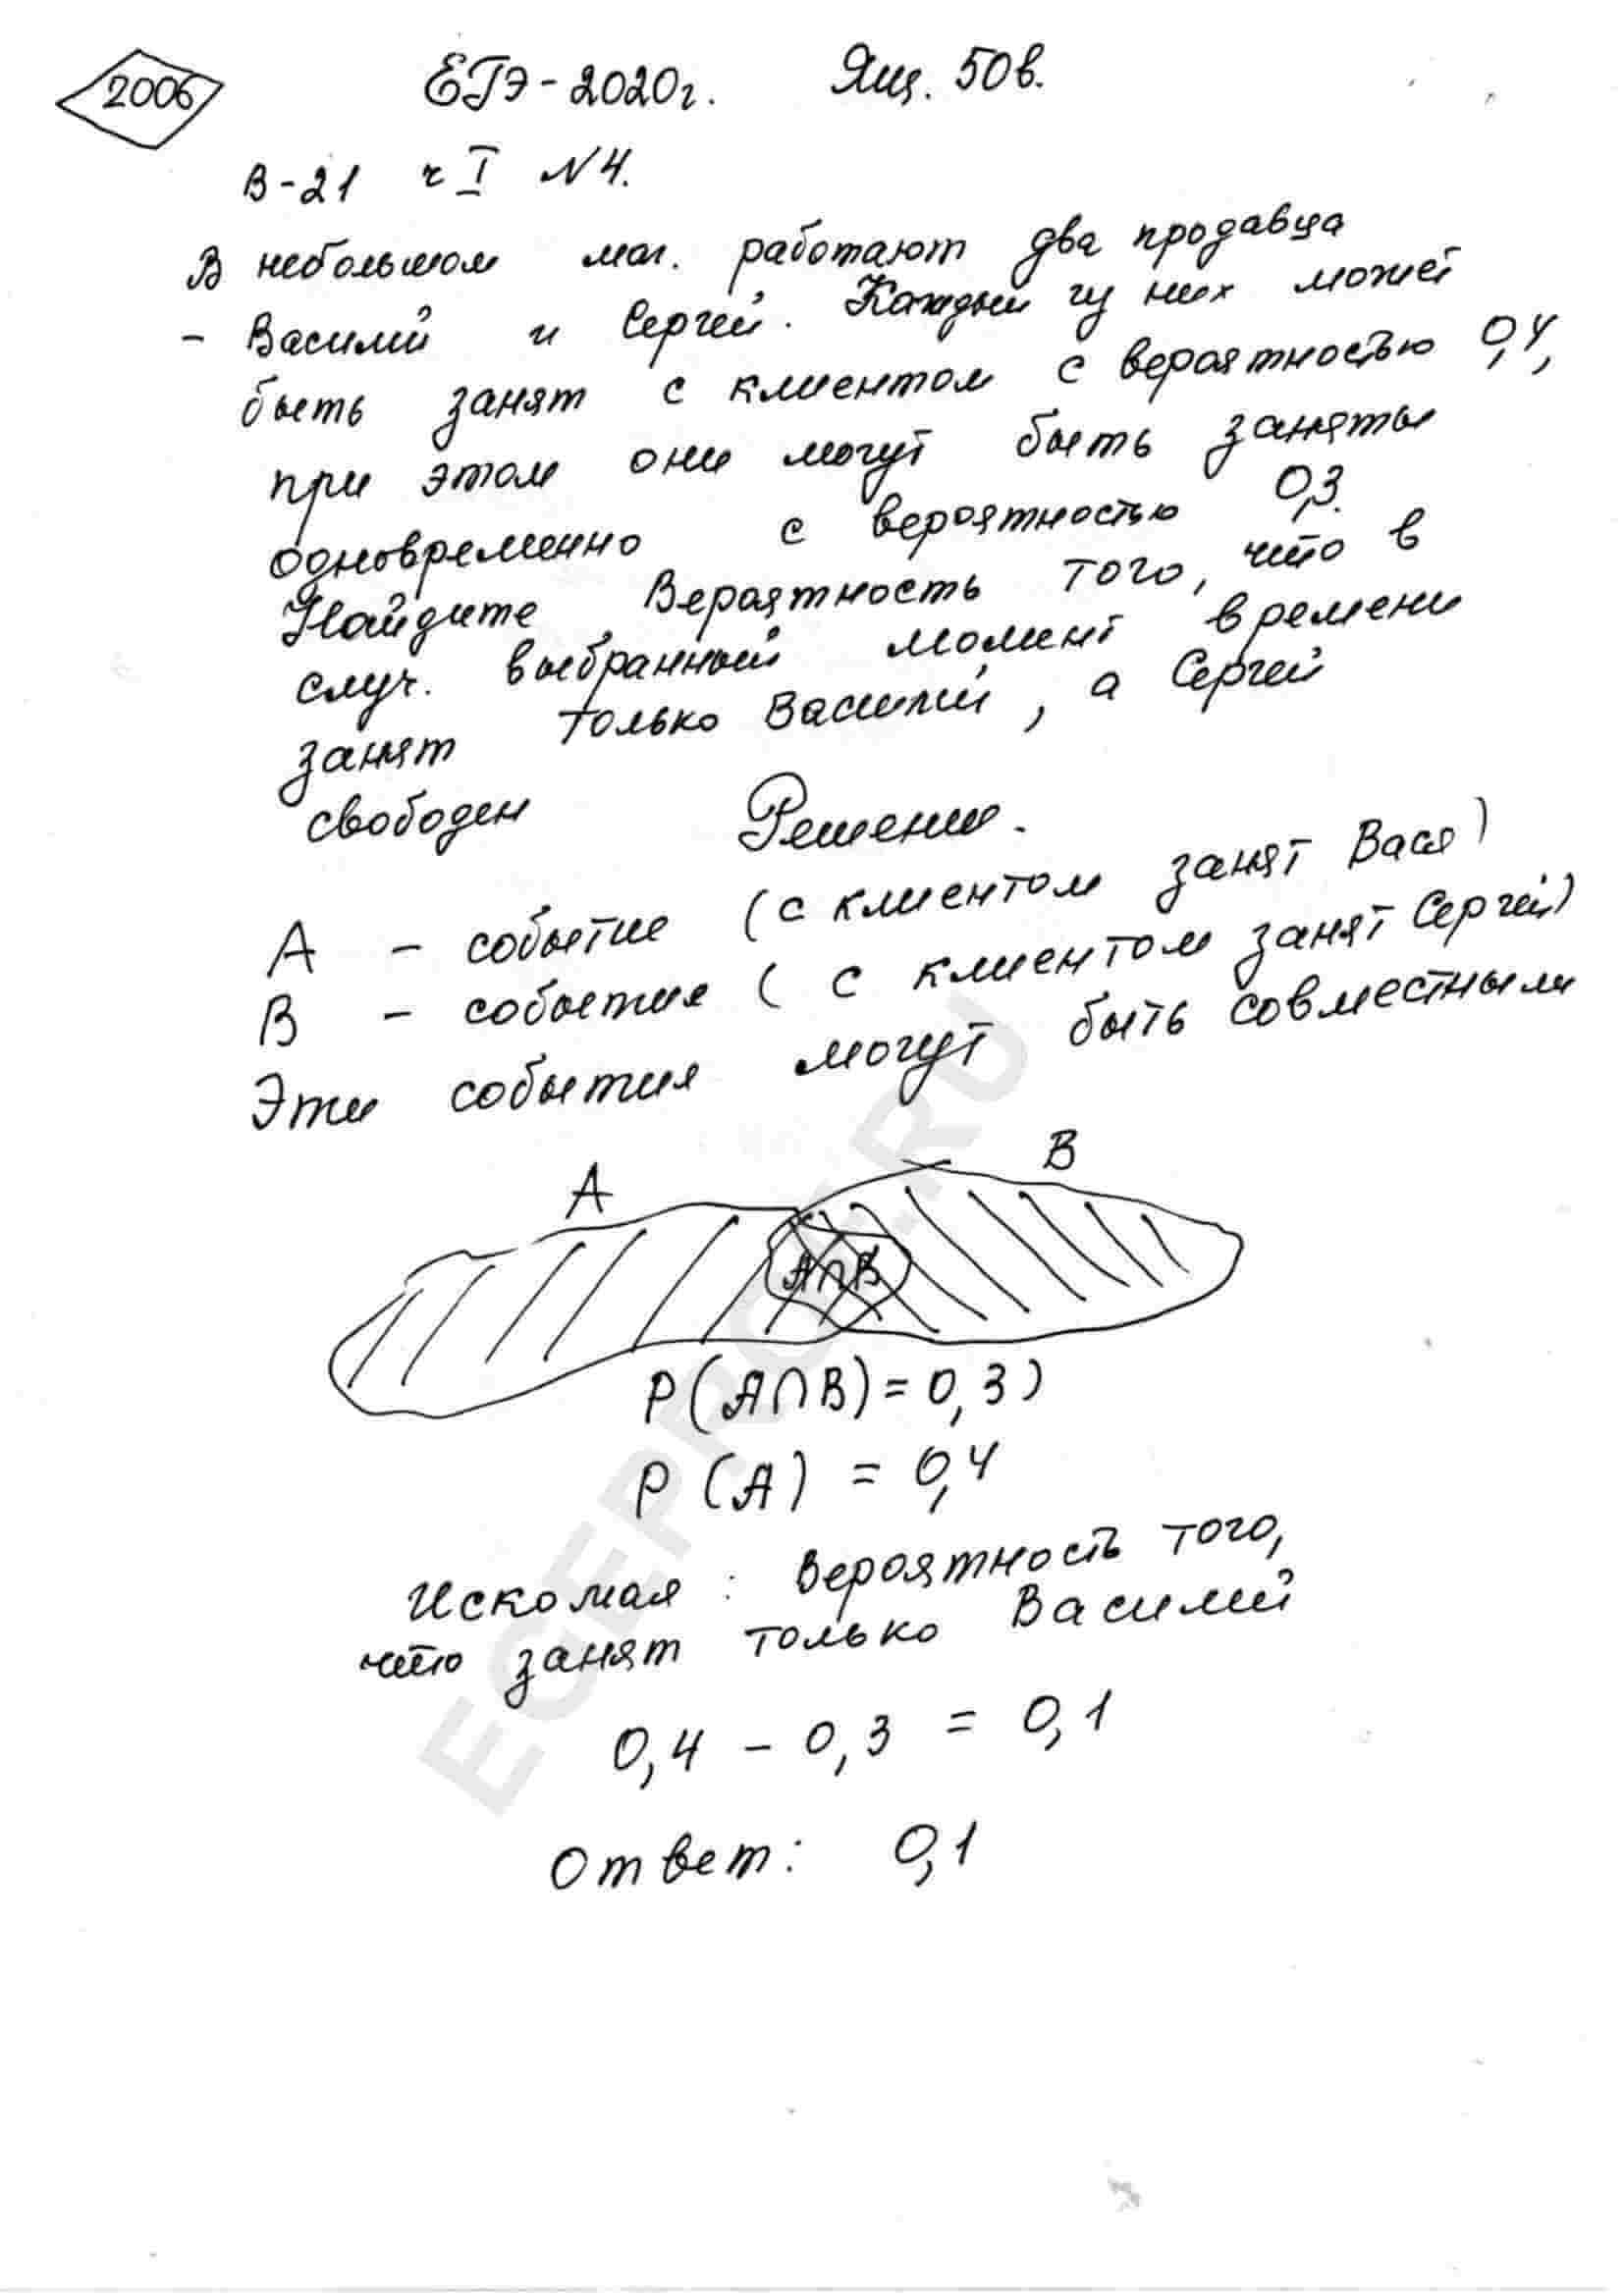 2006
ЕГЭ-2020г. Ящ. 50в.
В-21 ч I N4.
В небольшом маг. работают два продавца
- Василий и Сергей. Каждый из них может
быть занят с клиентом с вероятностью 0,4,
при этом они могут быть заняты
одновременно с вероятностью 0,3.
Найдите вероятность того, что в
случ. выбранный момент времени
занят только Василий, а Сергей
свободен
Решение.
А - событие (с клиентом занят Вася)
В - событие (с клиентом занят Сергей)
Эти события могут быть совместными
A
B
A∩B
P(A∩B)=0,3)
P(A) = 0,4
Искомая: вероятность того,
что занят только Василий
0,4 - 0,3 = 0,1
Ответ: 0,1
EGEPROF.RU